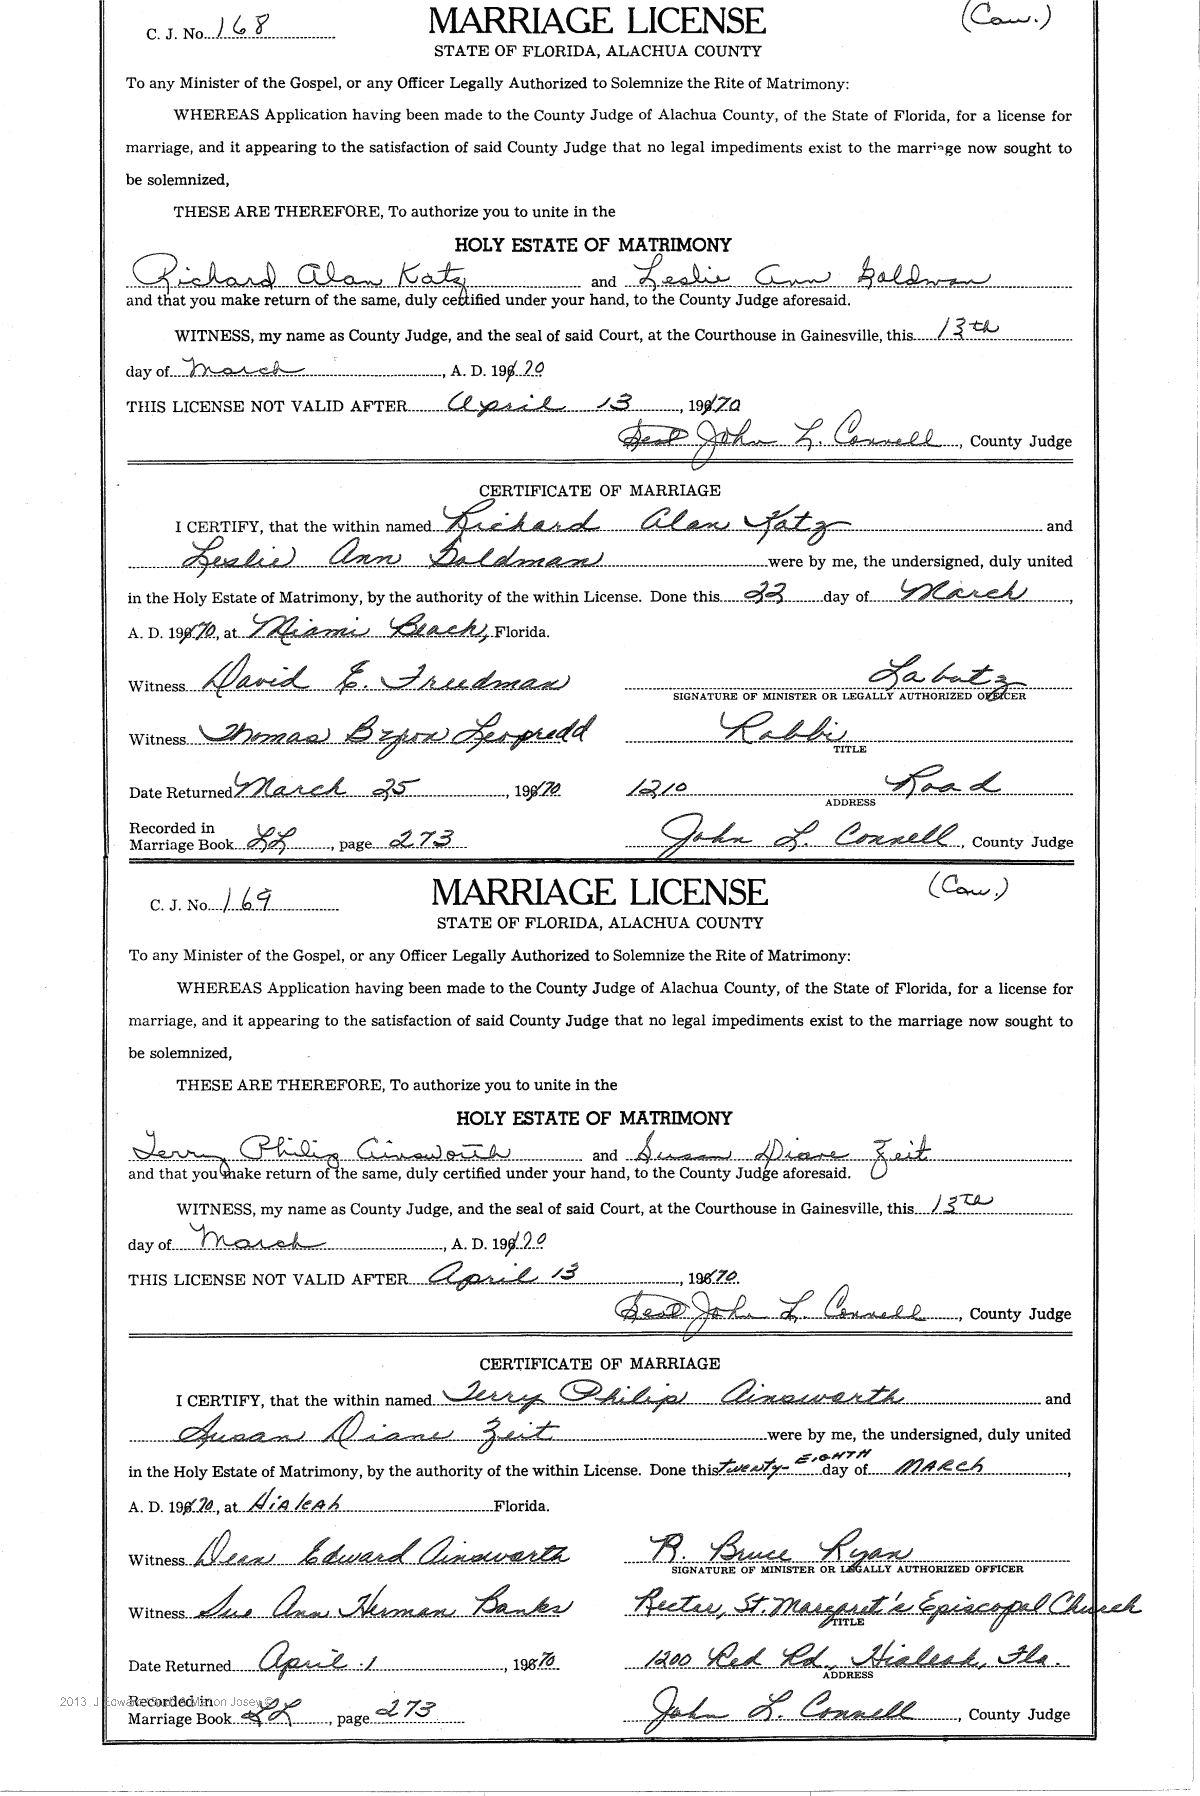 C. J. No. 168 MARRIAGE LICENSE (Cau.)
STATE OF FLORIDA, ALACHUA COUNTY
To any Minister of the Gospel, or any Officer Legally Authorized to Solemnize the Rite of Matrimony:
WHEREAS Application having been made to the County Judge of Alachua County, of the State of Florida, for a license for
marriage, and it appearing to the satisfaction of said County Judge that no legal impediments exist to the marriage now sought to
be solemnized,
THESE ARE THEREFORE, To authorize you to unite in the
HOLY ESTATE OF MATRIMONY
Richard Alan Katz and Leslie Ann Goldman
and that you make return of the same, duly certified under your hand, to the County Judge aforesaid.
WITNESS, my name as County Judge, and the seal of said Court, at the Courthouse in Gainesville, this 13th
day of March, A. D. 1970
THIS LICENSE NOT VALID AFTER April 13, 1970
Seal John L. Connell, County Judge
CERTIFICATE OF MARRIAGE
I CERTIFY, that the within named Richard Alan Katz and
Leslie Ann Goldman were by me, the undersigned, duly united
in the Holy Estate of Matrimony, by the authority of the within License. Done this 22 day of March,
A. D. 1970, at Miami Beach, Florida.
Witness David E. Freedman Labatz
SIGNATURE OF MINISTER OR LEGALLY AUTHORIZED OFFICER
Witness Thomas Byron Rabbi
TITLE
Date Returned March 25, 1970 1210 Road
ADDRESS
Recorded in
Marriage Book LL, page 273 John L. Connell, County Judge
C. J. No. 169 MARRIAGE LICENSE (Cau.)
STATE OF FLORIDA, ALACHUA COUNTY
To any Minister of the Gospel, or any Officer Legally Authorized to Solemnize the Rite of Matrimony:
WHEREAS Application having been made to the County Judge of Alachua County, of the State of Florida, for a license for
marriage, and it appearing to the satisfaction of said County Judge that no legal impediments exist to the marriage now sought to
be solemnized,
THESE ARE THEREFORE, To authorize you to unite in the
HOLY ESTATE OF MATRIMONY
Terry Philip Ainsworth and Susan Diane Zeit
and that you make return of the same, duly certified under your hand, to the County Judge aforesaid.
WITNESS, my name as County Judge, and the seal of said Court, at the Courthouse in Gainesville, this 13th
day of March, A. D. 1970
THIS LICENSE NOT VALID AFTER April 13, 1970.
Seal John L. Connell, County Judge
CERTIFICATE OF MARRIAGE
I CERTIFY, that the within named Terry Philip Ainsworth and
Susan Diane Zeit were by me, the undersigned, duly united
in the Holy Estate of Matrimony, by the authority of the within License. Done this twenty-EIGHTH day of MARCH,
A. D. 1970, at HiAleAh Florida.
Witness Dean Edward Ainsworth R. Bruce Ryan
SIGNATURE OF MINISTER OR LEGALLY AUTHORIZED OFFICER
Witness Sue Ann Herman Banks Rector, St. Margaret's Episcopal Church
TITLE
Date Returned April 1, 1970 1200 Red Rd., Hialeah, Fla.
ADDRESS
2013 J Edward Josey ©
Recorded in
Marriage Book LL, page 273 John L. Connell, County Judge